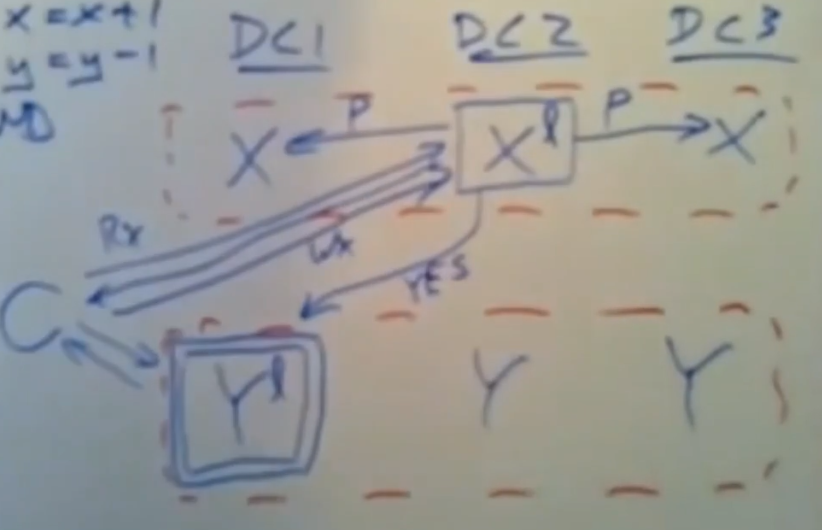 x = x + 1
y = y - 1
DC1 DC2 DC3
X P Xl P X
Rx
Wx
YES
C
Yl Y Y